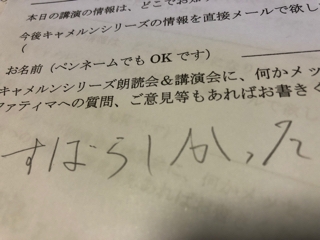 本日の講演の情報は、どこでお
今後キャメルンシリーズの情報を直接メールで欲し
(
お名前(ペンネームでも OK です)
キャメルンシリーズ朗読会&講演会に、何かメッ
ファティマへの質問、ご意見等もあればお書きく
すばらしかった